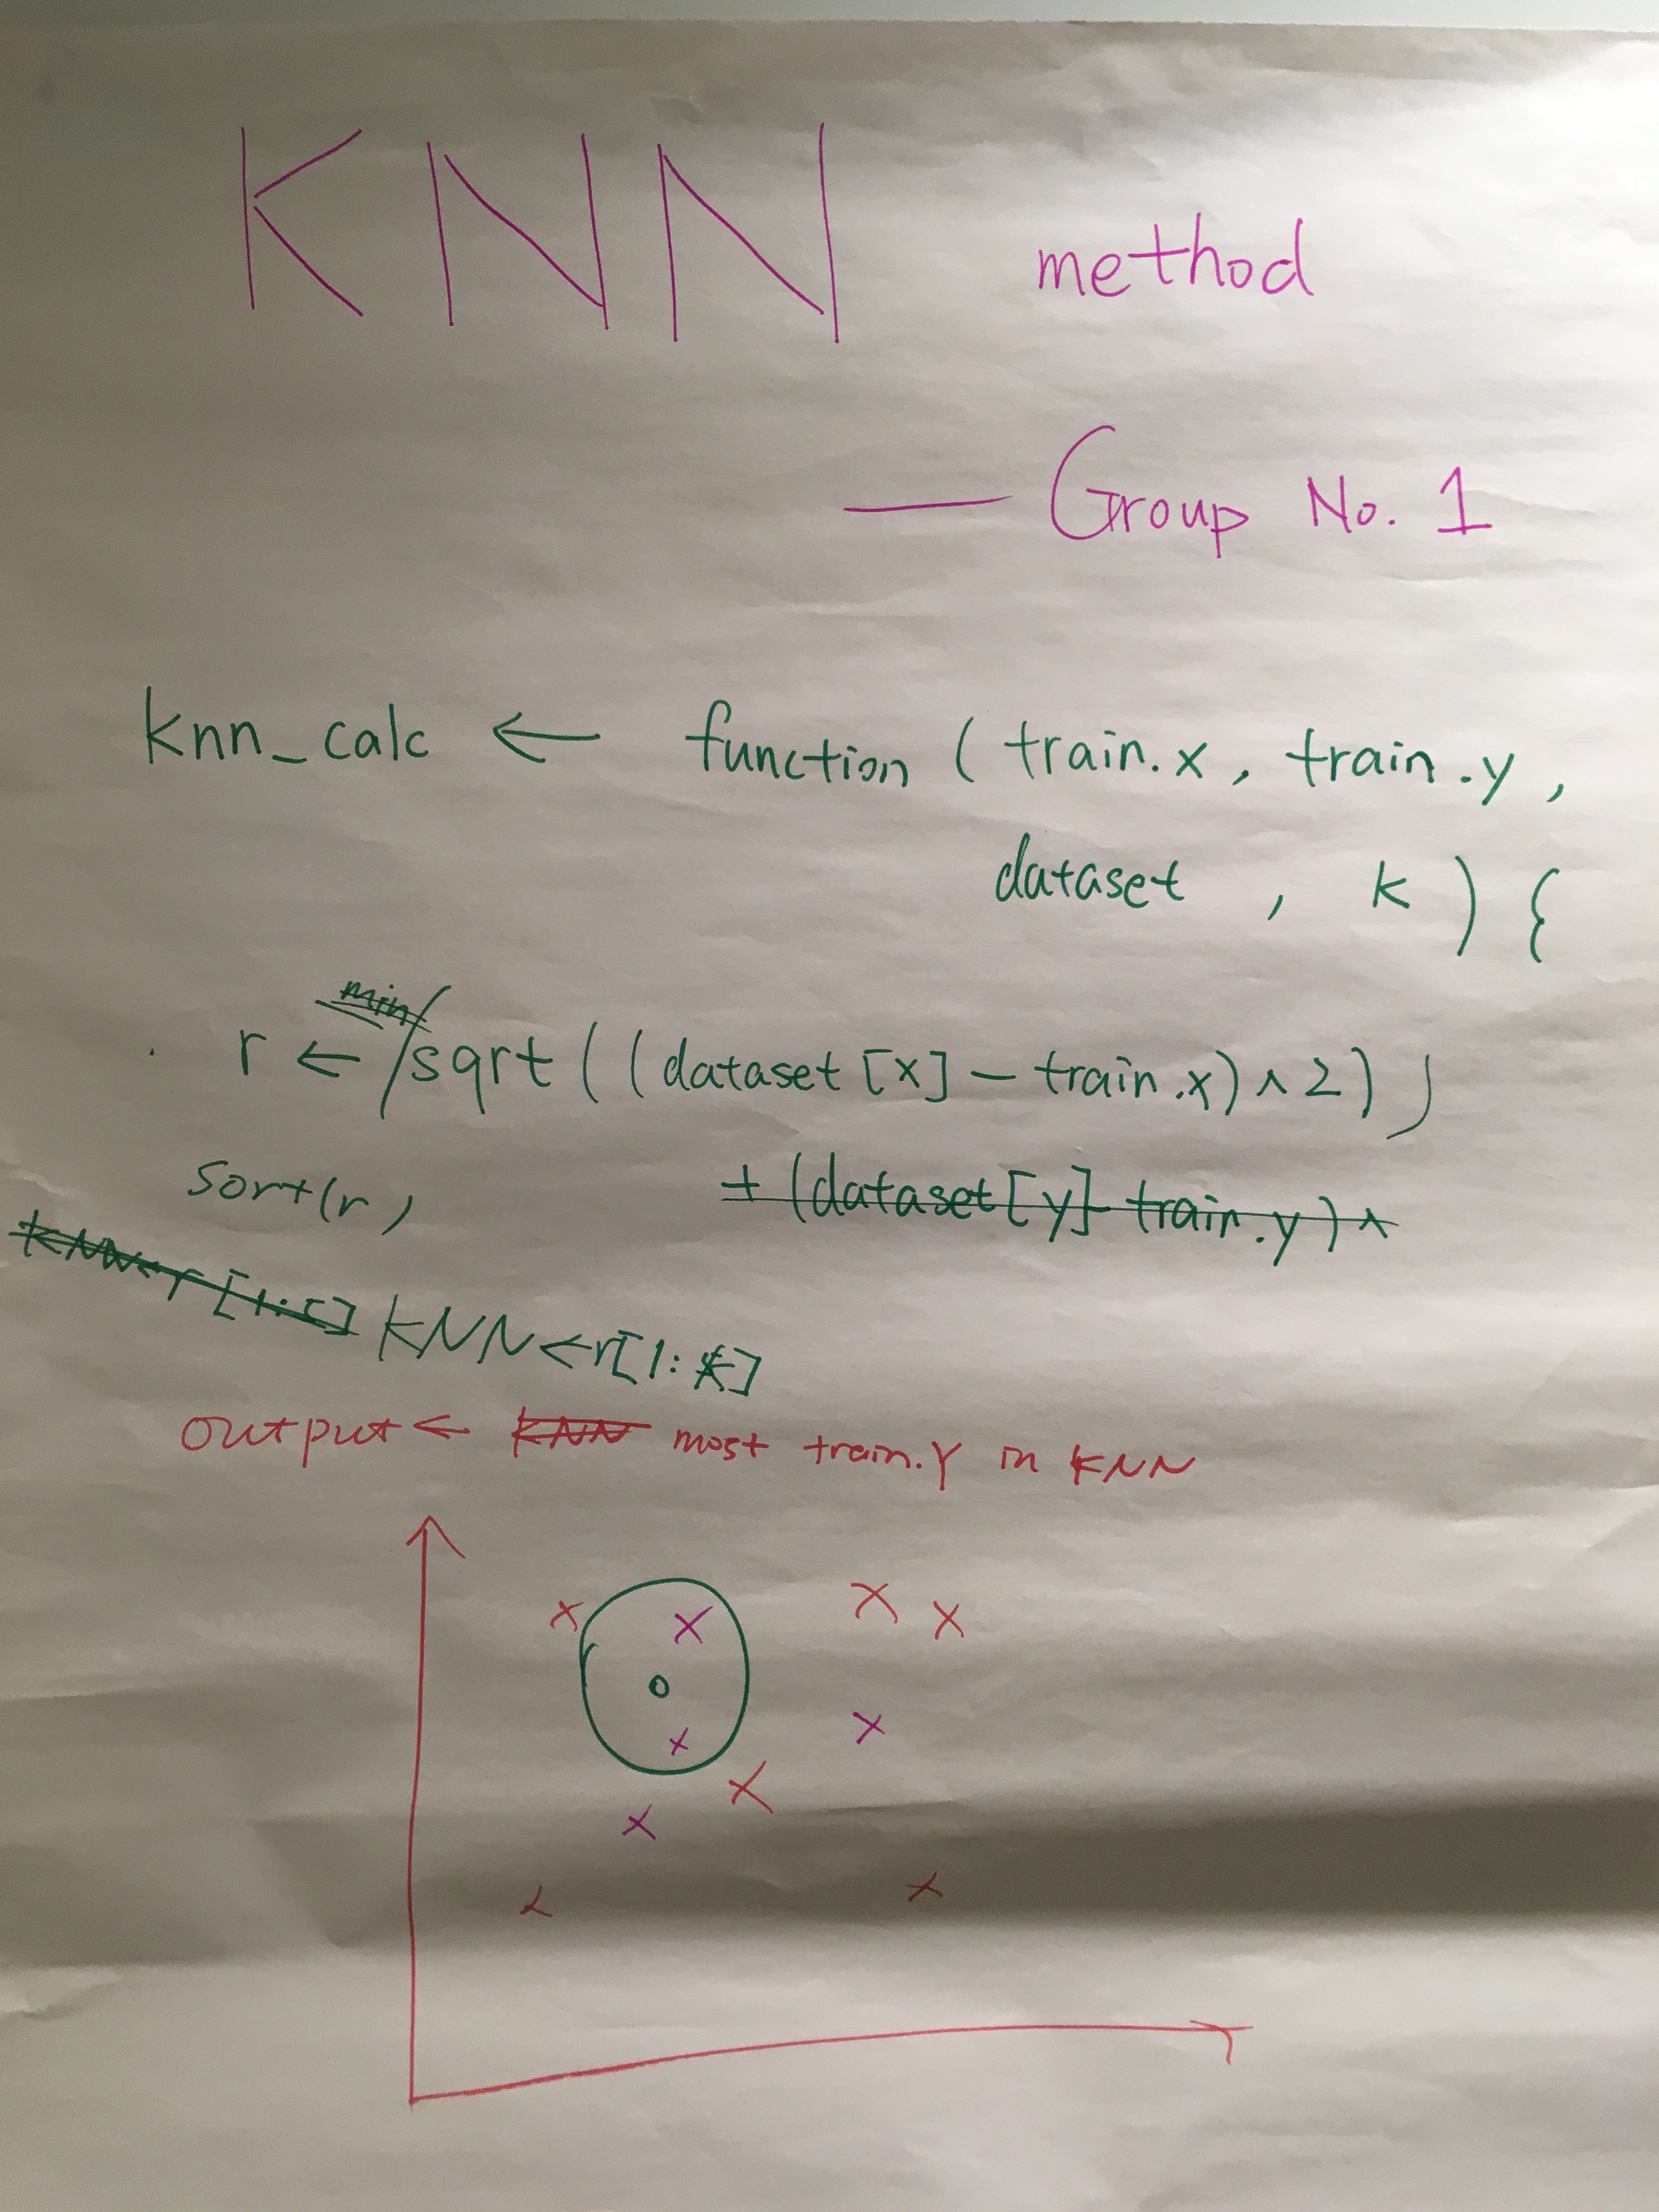 KNN method
— Group No. 1
knn_calc ← function ( train.x, train.y,
dataset, k ) {
min
r ← sqrt ( ( dataset [x] - train.x) ^ 2 ) )
sort(r) + (dataset[y] - train.y) ^
KNN ← r [1:5] KNN ← r[1:k]
output ← KNN most train.Y in KNN